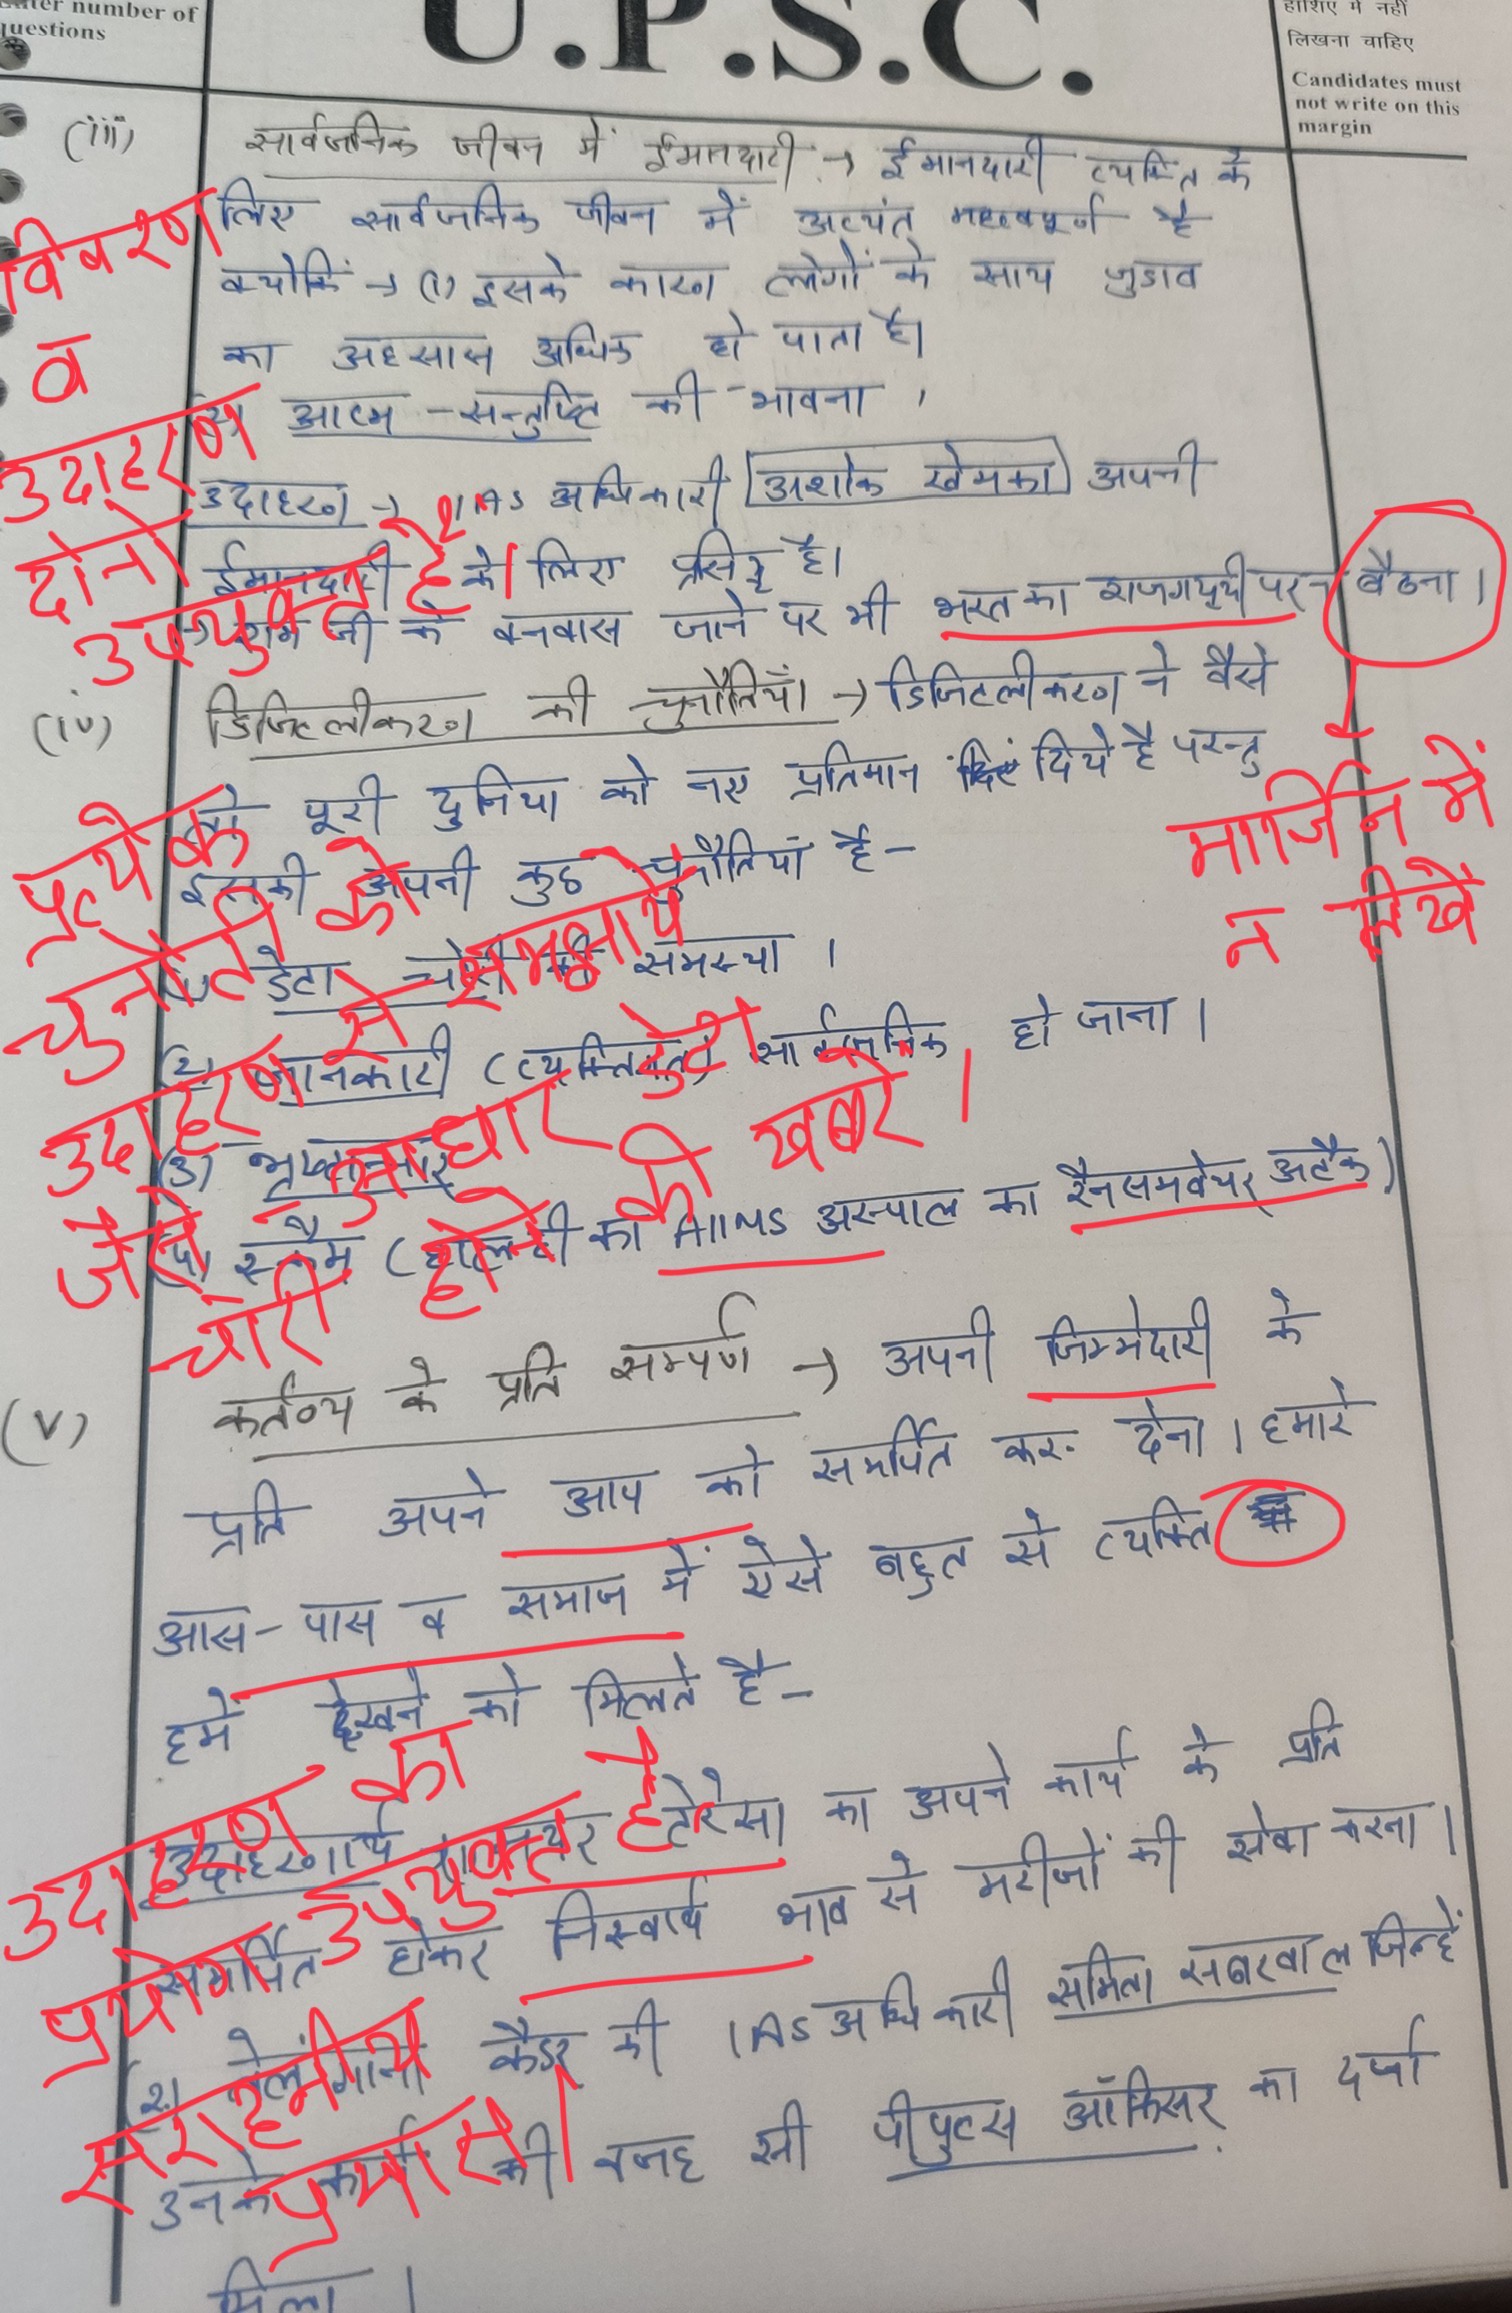 number of
questions
U.P.S.C.
हाशिए में नहीं
लिखना चाहिए
Candidates must
not write on this
margin
(iii) सार्वजनिक जीवन में ईमानदारी → ईमानदारी व्यक्ति के
लिए सार्वजनिक जीवन में अत्यंत महत्वपूर्ण है
क्योकिं → (1) इसके कारण लोगों के साथ जुडाव
का अहसास अधिक हो पाता है।
(2) आत्म-सन्तुष्टि की भावना ,
उदाहरण → IAS अधिकारी अशोक खेमका अपनी
ईमानदारी के लिए प्रसिद्ध है।
→ राम जी के वनवास जाने पर भी भरत का राजगद्दी पर न बैठना।
विवरण
व
उदाहरण
दोनों
उपयुक्त है।
(iv) डिजिटलीकरण की चुनौतियाँ → डिजिटलीकरण ने वैसे
तो पूरी दुनिया को नए प्रतिमान दिये है परन्तु
इसकी अपनी कुछ चुनौतियां है-
(1) डेटा चोरी की समस्या ।
(2) जानकारी (व्यक्तिगत) सार्वजनिक हो जाना।
(3) भ्रष्टाचार
(4) स्कैम (हाल ही का AIIMS अस्पाल का रैनसमवेयर अटैक)
प्रत्येक
चुनौती को
उदाहरण से समझायें
जैसे आधार डेटा
चोरी होने की खबरें।
मार्जिन में
न लिखें
(v) कर्तव्य के प्रति सम्पर्ण → अपनी जिम्मेदारी के
प्रति अपने आप को समर्पित कर देना। हमारे
आस-पास व समाज में ऐसे बहुत से व्यक्ति
हमें देखने को मिलते है-
उदाहरणार्थ टेरेसा का अपने कार्य के प्रति
समर्पित होकर निस्वार्थ भाव से मरीजों की सेवा करना।
(2) तेलंगाना कैडर की IAS अधिकारी समिता सबरवाल जिन्हें
उनके कार्यो की वजह से पीपुल्स ऑफिसर का दर्जा
मिला।
उदाहरण का
प्रयोग उपयुक्त है
सराहनीय
प्रयास।